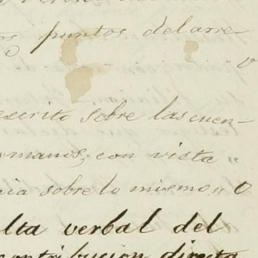 puntos del arre-
escrito sobre las cuen-
manos, con vista
sobre lo mismo,, O
verbal del
contribucion directa